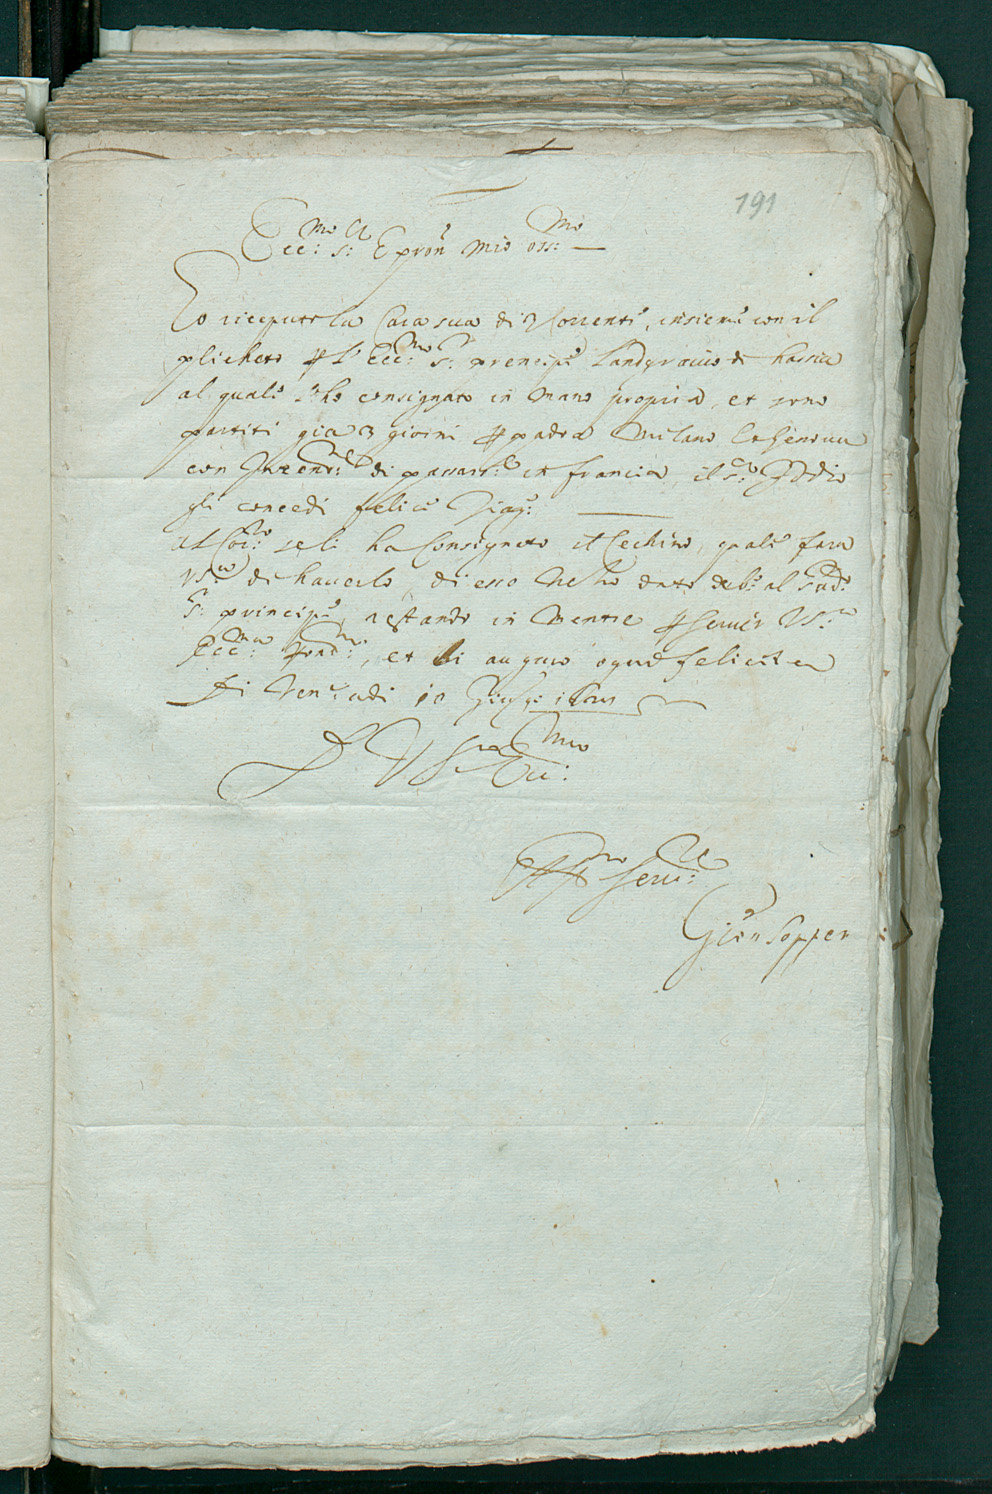 191
Ecc:mo S: E pron mio oss:mo
Eo riceputo la Cara sua di Correnti, insieme con il
plicheto per L' Ecc:mo S: prencipe Landgravio d hassia
al quale l'ho consignato in mano propria, et sono
partiti gia 3 giorni per padoa Milano et Genoua
con di passar in francia, il S: Iddio
gli concedi felice viag:
Al Cor: seli ha Consignato il Cechino, quale fara
VS:a di hauerlo di esso ne ho dato deb: al sud:
S: principe, restando in mente per seruir VS:a
Ecc:ma , et li auguro ogni felicita
Di Ven: adi 10 Giug:
D V S Ecc:ma
Aff:mo seru:
Gion Popper